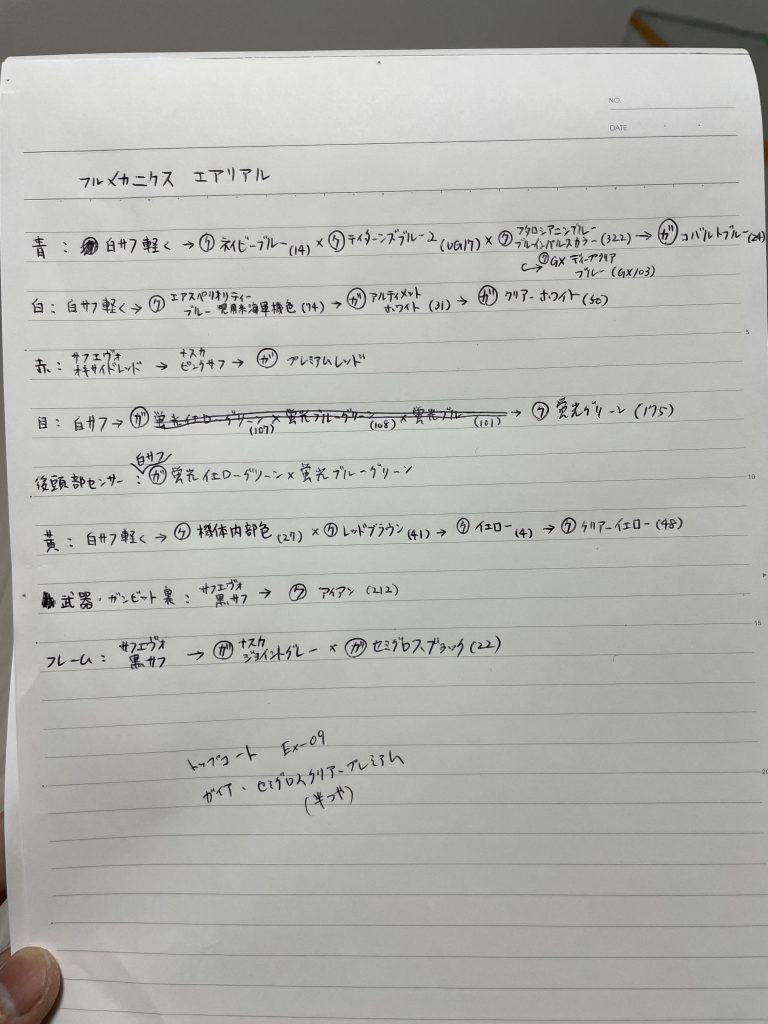 NO.
DATE
フルメカニクス エアリアル
青: 白サフ軽く → ク ネイビーブルー(14) × ク ティターンズブルー2(UG17) × ク フタロシアニンブルー ブルーインパルスカラー(322) → ガ コバルトブルー(24)
クGX ディープクリアブルー(GX103)
白: 白サフ軽く → ク エアスペリオリティーブルー 現用米海軍機色(74) → ガ アルティメットホワイト(31) → ガ クリアーホワイト(50)
5
赤: サフエヴォ オキサイドレッド → ナスカ ピンクサフ → ガ プレミアムレッド
目: 白サフ → ガ 蛍光イエローグリーン(107) × 蛍光ブルーグリーン(108) × 蛍光ブルー(101) → ク 蛍光グリーン(175)
後頭部センサー: 白サフ ガ 蛍光イエローグリーン × 蛍光ブルーグリーン
10
黄: 白サフ軽く → ク 機体内部色(27) × ク レッドブラウン(41) → ク イエロー(4) → ク クリアーイエロー(48)
武器・ガンビット裏: サフエヴォ 黒サフ → ク アイアン(212)
15
フレーム: サフエヴォ 黒サフ → ガ ナスカ ジョイントグレー × ガ セミグロスブラック(22)
トップコート Ex-09
ガイア・セミグロスクリアープレミアム
20
(半つや)